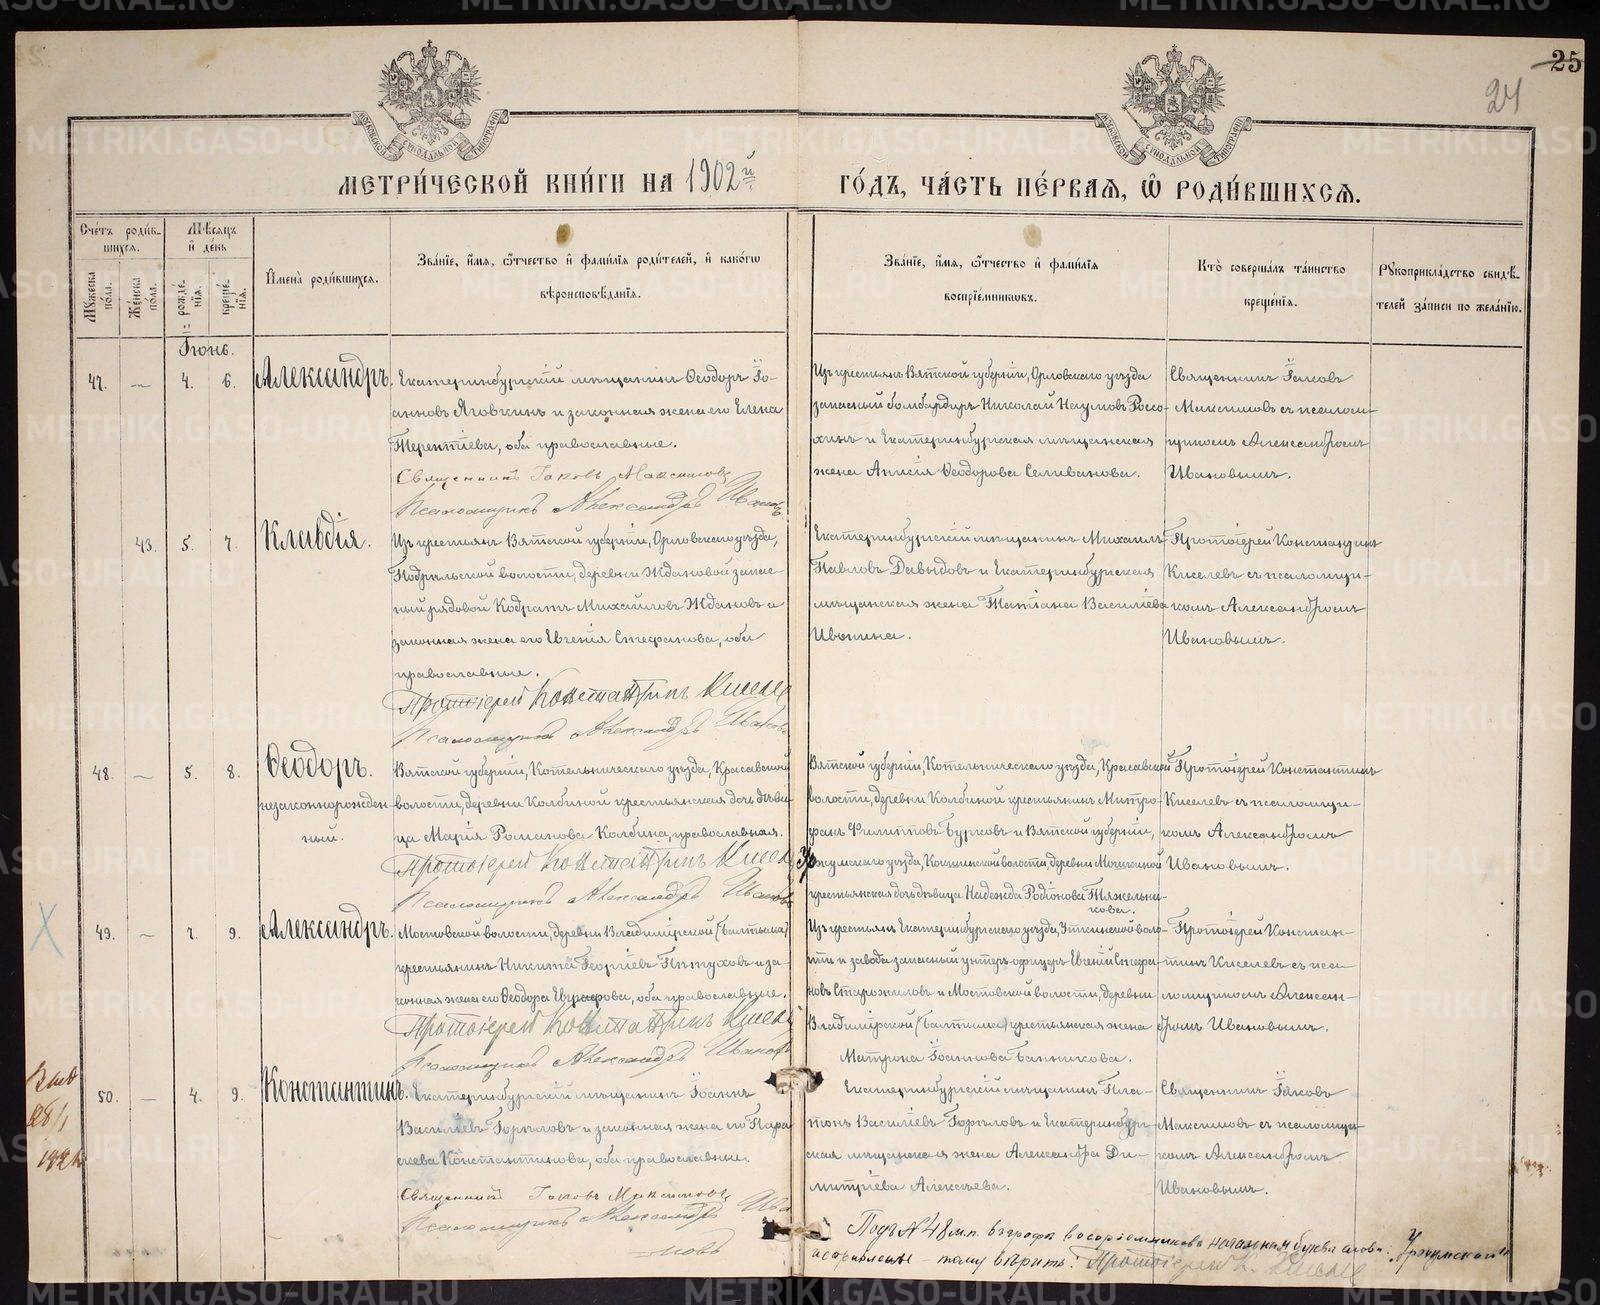 25
24
МЕТРИ́ЧЕСКОЙ КНИ́ГИ НА 1902й
ГО́ДЪ, ЧА́СТЬ ПЕ́РВАЯ, Ѿ РОДИ́ВШИХСЯ.
Сче́тъ роди́в-
шихся.
Мѣ́сяцъ
и҆ де́нь
Му́жеска по́ла.
Же́нска по́ла.
рожде́нїя.
креще́нїя.
И҆мена̀ роди́вшихся.
Зва́нїе, и҆́мя, ѻ҆́тчество и҆ фами́лїя роди́телей, и҆ како́гѡ
вѣроисповѣ́данїя.
Зва́нїе, и҆́мя, ѻ҆́тчество и҆ фами́лїя
воспрїе́мниковъ.
Кто̀ соверша́лъ та́инство
креще́нїя.
Рꙋкоприкла́дство свидѣ́-
телей за́писи по жела́нїю.
Іюнь.
47. — 4. 6. Александръ.
Екатеринбургскій мѣщанинъ Ѳеодоръ Іо-
анновъ Яговкинъ и законная жена его Елена
Терентіева, оба православные.
Священникъ Іаковъ Максимовъ
Псаломщикъ Александръ Ивановъ
Изъ крестьянъ Вятской губерніи, Орловскаго уѣзда
запасный бомбардиръ Николай Наумовъ Росо-
хинъ и Екатеринбургская мѣщанская
жена Анисія Ѳеодорова Селиванова.
Священникъ Іаковъ
Максимовъ съ псалом-
щикомъ Александромъ
Ивановымъ.
43. 5. 7. Клавдія.
Изъ крестьянъ Вятской губерніи, Орловскаго уѣзда,
Подрѣльской волости, деревни Ждановой запас-
ный рядовой Кодратъ Михайловъ Ждановъ и
законная жена его Евгенія Стефанова, оба
православные.
Протоіерей Константинъ Киселев
Псаломщикъ Александръ Иванов
Екатеринбургскій мѣщанинъ Михаилъ
Павловъ Давыдовъ и Екатеринбургская
мѣщанская жена Татіана Василіева
Ивонина.
Протоіерей Константинъ
Киселевъ съ псаломщи-
комъ Александромъ
Ивановымъ.
48. — 5. 8. Ѳеодоръ.
незаконнорожден-
ный.
Вятской губерніи, Котельническаго уѣзда, Красавской
волости, деревни Колбиной крестьянская дочь дѣви-
ца Марія Романова Колбина, православная.
Протоіерей Константинъ Кисел
Псаломщикъ Александръ Иванов
Вятской губерніи, Котельническаго уѣзда, Красавской
волости, деревни Колбиной крестьянинъ Митро-
фанъ Филиповъ Бурковъ и Вятской губерніи,
Уржумскаго уѣзда, волости, деревни
крестьянская дочь дѣвица Надежда Родіонова Тяжельни-
кова.
Протоіерей Константинъ
Киселевъ съ псаломщи-
комъ Александромъ
Ивановымъ.
49. — 7. 9. Александръ.
Мостовской волости, деревни Владимірской (Балтыма)
крестьянинъ Никита Георгіевъ Пѣтуховъ и за-
конная жена его Ѳеодора Евграфова, оба православные.
Протоіерей Константинъ Кисел
Псаломщикъ Александръ Иванов
Изъ крестьянъ Екатеринбургскаго уѣзда, Уткинской воло-
сти и завода запасный унтеръ-офицеръ Евгеній Стефа-
новъ Старожиловъ и Мостовской волости, деревни
Владимірской (Балтыма) крестьянская жена
Матрона Іоаннова Банникова.
Протоіерей Констан-
тинъ Киселевъ съ пса-
ломщикомъ Алексан-
дромъ Ивановымъ.
50. — 4. 9. Константинъ.
Екатеринбургскій мѣщанинъ Іоаннъ
Василіевъ Горѣловъ и законная жена его Пара-
скева Константинова, оба православные.
Священникъ Іаковъ Максимовъ
Псаломщикъ Александръ Ива
новъ
Екатеринбургскій мѣщанинъ Пла-
тонъ Василіевъ Горѣловъ и Екатеринбург-
ская мѣщанская жена Александра Ди-
митріева Алексѣева.
Священникъ Іаковъ
Максимовъ съ псаломщи-
комъ Александромъ
Ивановымъ.
Подъ №48 м.п. въ графѣ воспріемниковъ начальная буква слова: "Уржумскаго"
исправлена — тому вѣрить: Протоіерей К. Киселе